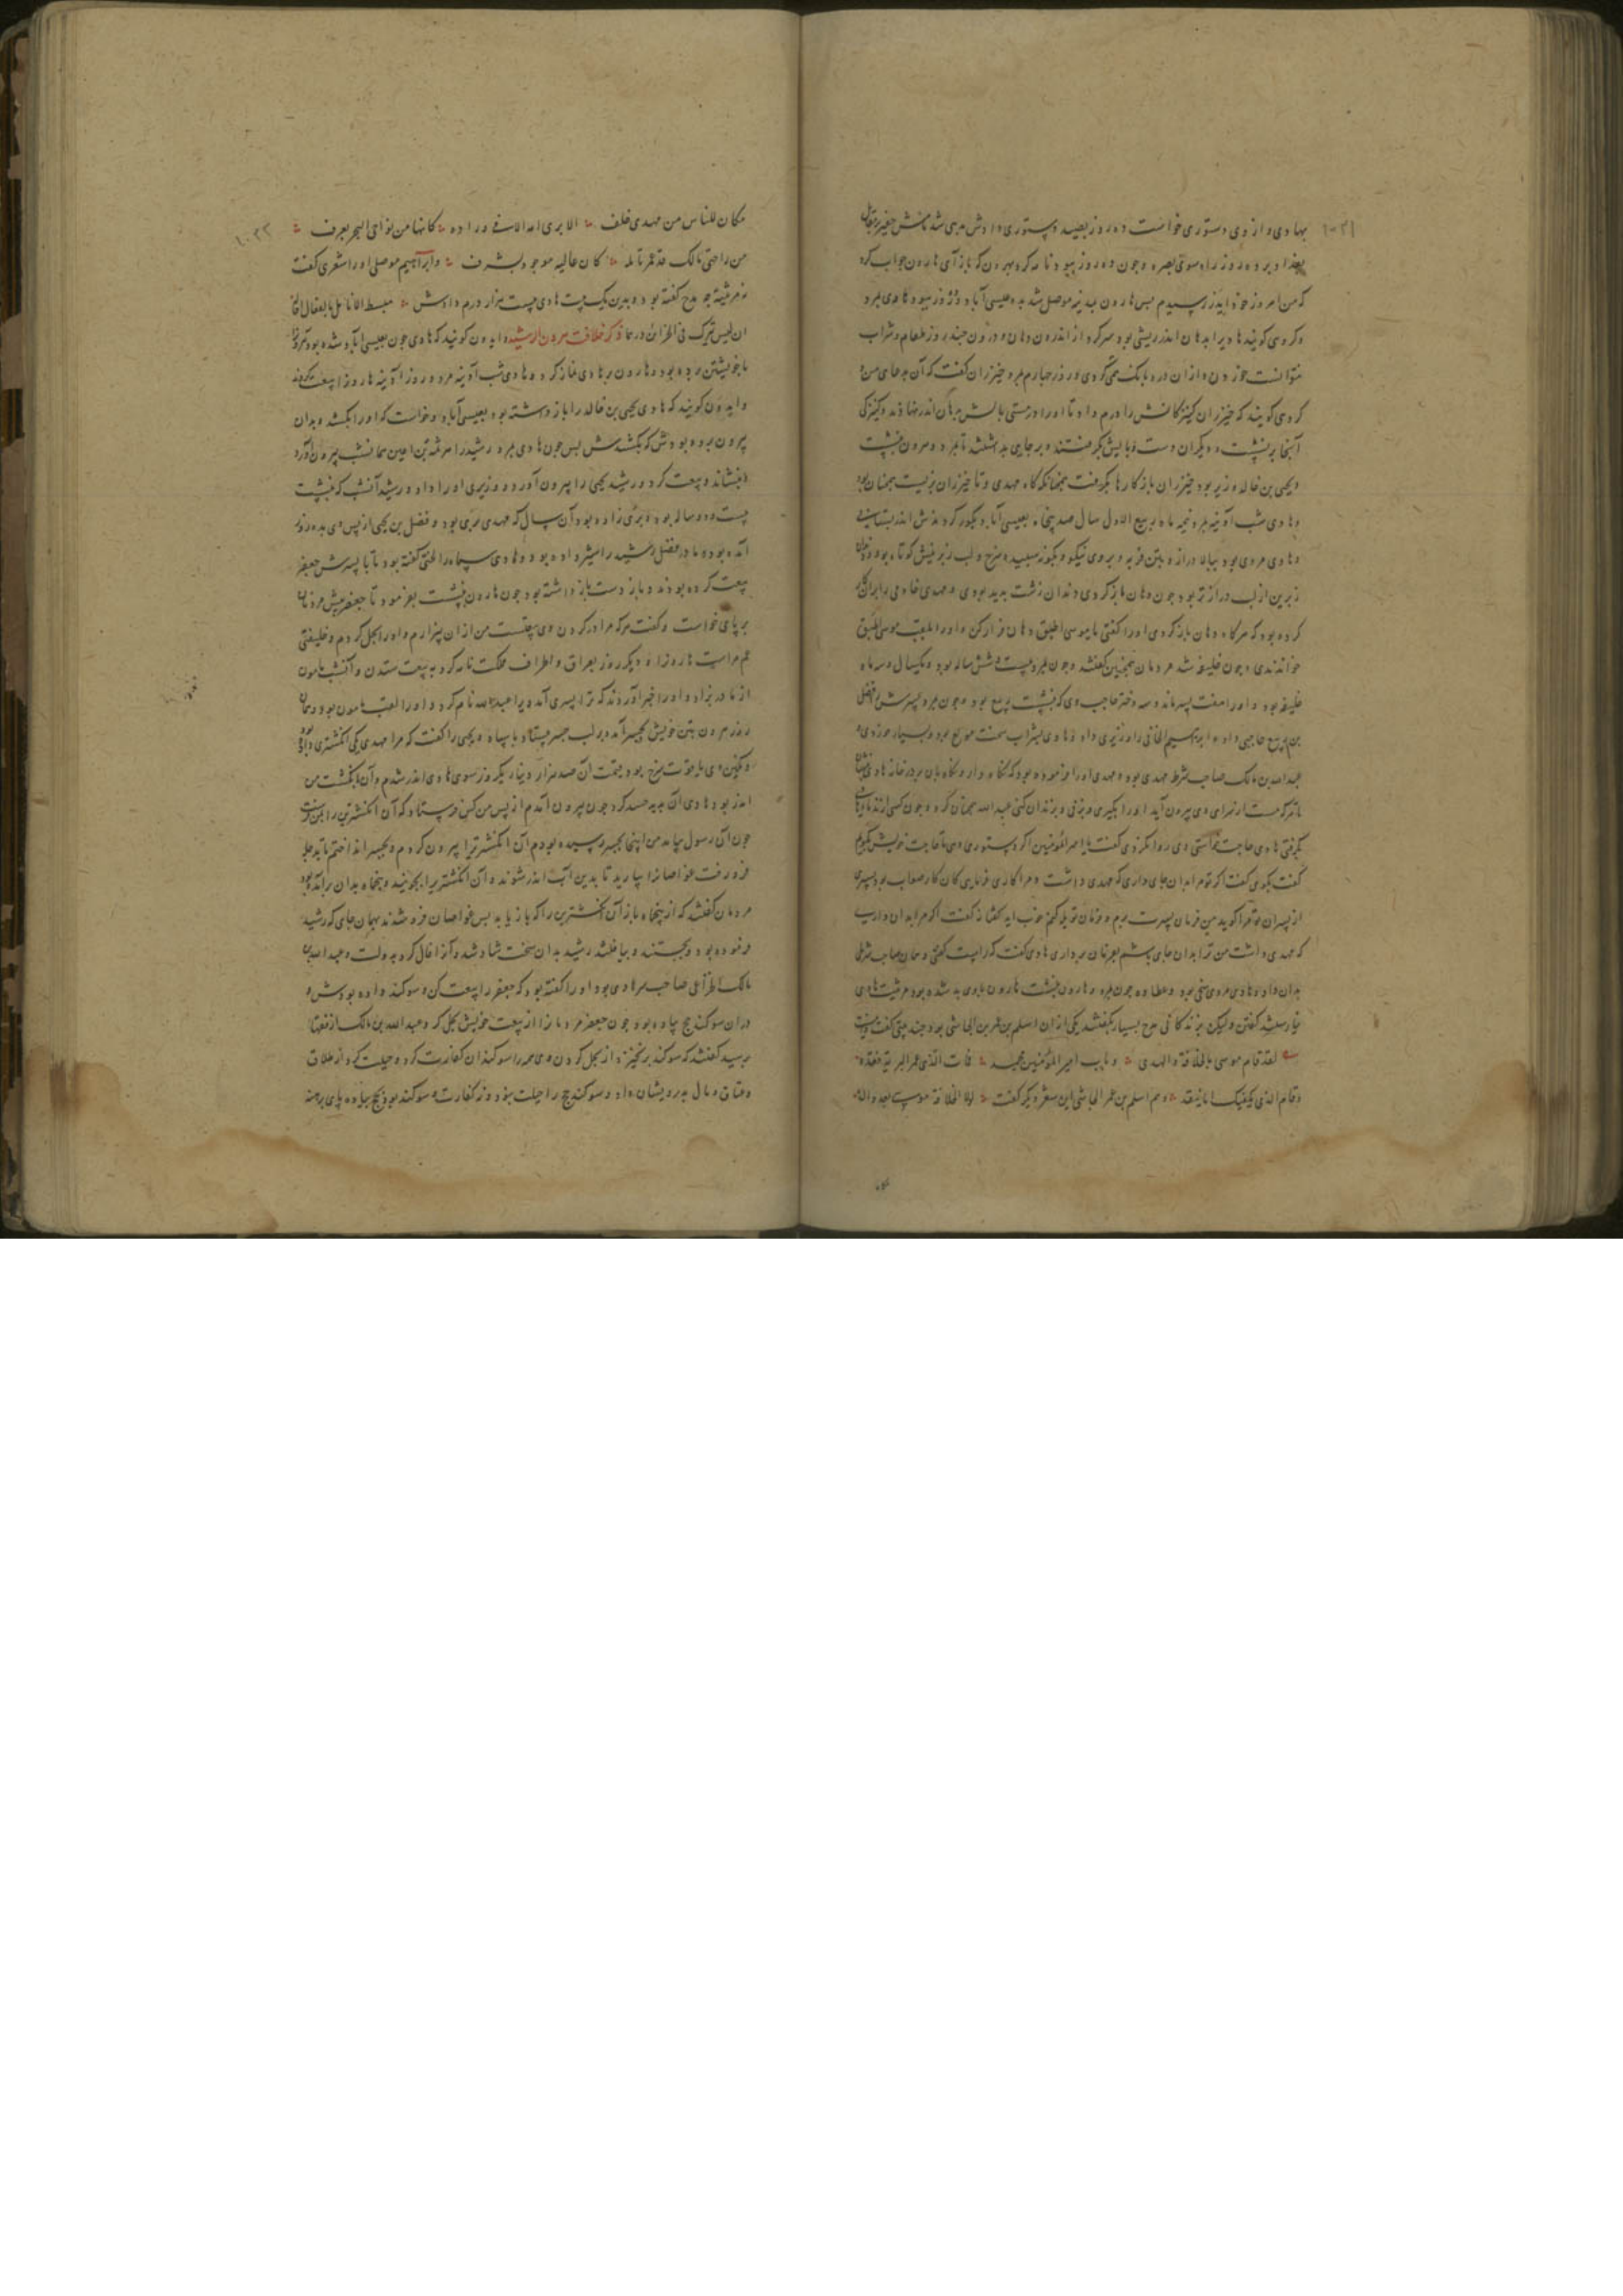 بهادی و از وی دستوری خواست ده روز بصید دستوری دادش
بغداد ده روز راه سوی بصره و چون ده روز ببود نامه کرد بهرون که باز آی هارون جواب کرد
که من امروز خود ایدر رسیدم پس هارون بدیه موصل شد به عیسی آباد روز ببود هادی بمرد
و کروهی کویند هادی را بدهان اندر ریشی بود از اندرون دهان و درون چند روز طعام و شراب
نتوانست خوردن و از ان درد بانک همی کردی و روز چهارم بمرد خیزران گفت که آن به جای من
کردی کویند که خیزران کنیزکانش را درم داد تا او را در مستی بالش بردهان اندر نهادند و کنیزکی
آنجا بر نشست و دیگران دست و پایش بگرفتند و بر جای بداشتند تا بمرد و هرون بنشست
و یحیی بن خالد وزیر بود خیزران باز کارها بگرفت همچنانکه گاه مهدی و تا خیزران بزیست همچنان بود
و هادی شب آدینه بمرد نیمه ماه ربیع الاول سال صد و پنجاه بعیسی آباد و بگور کردندش اندر بستانی
و هادی مردی بود ببالا دراز و بتن فربه و بروی نیکو و بگونه سپید و سرخ و لب زبرینش کوتاه بود و دندان
زبرین از لب درازتر بود چون دهان باز کردی دندان زشت پدید بودی و مهدی خادمی را بران
کرده بود که هرگاه دهان باز کردی او را گفتی یا موسی اطبق دهان فراز کن و او را بلقب موسی اطبق
خواندندی و چون خلیفه شد مردمان همچنین گفتند و چون بمرد بیست و شش ساله بود و یکسال و سه ماه
خلیفه بود و او را هفت پسر ماند و سه دختر حاجب وی که بنشست ربیع بود و چون بمرد پسرش را فضل
بن ربیع حاجبی داد و ابرهیم الحرانی را وزیری داد و هادی بشراب سخت مولع بود و بسیار خوردی و
عبدالله بن مالک صاحب شرط مهدی بود و مهدی او را فرموده بود که نگاه دار و نگاه بان بر در خانه هادی بنشان
تا هر که مست از سرای وی بیرون آید او را بگیری و بزنی و بزندان کنی عبدالله همچنان کرد و چون کسی از ندیمان
بگرفتی هادی حاجت خواستی وی روا نکردی گفت یا امیر المؤمنین اگر دستوری دهی تا حاجت خویش بگویم
گفت بگوی گفت اگر تو مرا بدان جای داری که مهدی داشت و مرا کاری فرمایی کان کار صواب بود پسری
از پسران تو مرا گوید من فرمان پسرت برم و فرمان تو یله کنم خوب آید گفتا نه گفت اگر مرا بدان داری
که مهدی داشت من ترا بدان جای باشم بفرمان برداری هادی گفت که راست گفتی و همان صاحب شرطی
بدان داد و هادی مردی سخی بود و عطا ده چون بمرد و هارون بنشست هارون با وی بد شده بود مرثیت هادی
نیارستند گفتن ولیکن بزندگانی مدح بسیار بگفتند یکی از ان اسلم بن عمرو بن الجاشی بود چند بیتی گفت
لقد قام موسی بالخلافة والهدی ؞ و مات امیر المؤمنین محمد ؞ فمات الذی عم البریة فقده
وقام الذی یکفیک ان یتفقد ؞ و هم اسلم بن عمر الجاشی این شعر دیگر گفت ؞ لولا الخلافة موسی بعد والده
۱۰۲۲
مکان للناس من مهدی خلف ؞ الا بری امة الامی وارده ؞ کانها من نواحی البحر یغرف ؞
من راحتی مالک قد عم نائله ؞ کان عالیه موجود بشرف ؞ و ابراهیم موصلی او را شعری گفت
نه مرثیة چو مدح گفته بود و بدین یک بیت هادی بیست هزار درم دادش ؞ مبسط الانامل بالفعال اخا
ان لیس یترک فی الخزائن درهما ذکر خلافت هرون الرشید و ایدون کویند که هادی چون بعیسی آباد شده بود هرون را
با خویشتن برده بود و هارون بر هادی نماز کرد و هادی شب آدینه مرد و روز آدینه هارون را بیعت کردند
و ایدون کویند که هادی یحیی بن خالد را باز داشته بود بعیسی آباد و خواست که او را بکشد و بدان
بیرون برده بودش که بکشدش پس چون هادی بمرد رشید را هرثمة بن اعین همان شب بیرون آورد
و بنشاند و بیعت کرد و رشید یحیی را بیرون آورد و وزیری او را داد و رشید آنشب که بنشست
بیست و دو ساله بود و بری زاده بود آن سال که مهدی بری بود و فضل بن یحیی از پس وی بده روز
آمده بود و مادر فضل رشید را شیر داده بود و هادی سپاه را گفته بود تا با پسرش جعفر
بیعت کرده بودند و باز دست باز داشته بود چون هارون بنشست بفرمود تا جعفر پیش مردمان
بر پای خواست و گفت هر که مرا در گردن وی بیعتست من از ان بیزارم و او را بحل کردم و خلیفتی
عم مراست هارون را و دیگر روز بعراق و اطراف مملکت نامه کرد به بیعت ستدن و آنشب مامون
از مادر بزاد و او را خبر آوردند که ترا پسری آمد ویرا عبدالله نام کرد و او را لقب مامون بود و همان
روز هرون بتن خویش بجسر آمد و بر لب جسر بیستاد با سپاه و یحیی را گفت که مرا مهدی یکی انگشتری داده بود
و نگین وی یاقوت سرخ بود و قیمت آن صد هزار دینار یکروز سوی هادی اندر شدم و آن بانگشت من
اندر بود و هادی آن بدید حسد کرد چون بیرون آمدم از پس من کس فرستاد که آن انگشترین را بمن فرست
چون آن رسول بیامد من اینجا بجسر رسیده بودم آن انگشتری را بیرون کردم و بجسر انداختم تا بدجله
فرو رفت غواصانرا بیارید تا بدین آب اندر شوند و آن انگشتری را بجویند و پنجاه بدان برآمده بود
مردمان گفتند که از پنجاه باز آن انگشترین را که باز یابد پس غواصان فرو شدند بهمان جای که رشید
فرموده بود و بجستند و بیافتند رشید بدان سخت شاد شد و آنرا فال کرد به دولت و عبدالله بن
مالک الخزاعی صاحب سر هادی بود و او را گفته بود که جعفر را بیعت کن و سوگند داده بودش و
دران سوگند حج پیاده بود و چون جعفر مردمانرا از بیعت خویش بحل کرد و عبدالله بن مالک از فقها
بپرسید گفتند که سوگند بر نخیزد از بحل کردن وی همه را سوگندان کفارت کرد و حیلت کرد از طلاق
و عتاق و مال بدرویشان داد و سوگند حج را حیلت نبود و نه کفارت و سوگند بود بحج پیاده پای برهنه